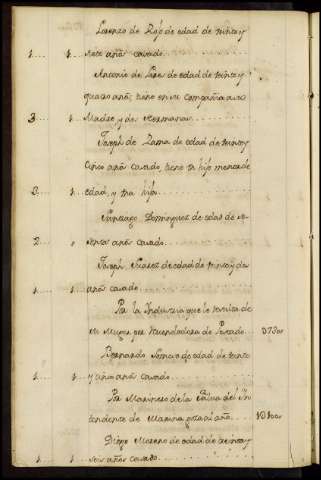 Lorenzo de Rojo de edad de treinta y
1 1 siete años casado
Antonio de Lara de edad de treinta y
quatro años, tiene en su Compañia a su
3 1 Madre y dos Hermanas
Joseph de Lama de edad de treinta y
Cinco años casado, tiene un hijo menor de
3 1 edad, y una hija
Santiago Dominguez de edad de
2 años casado
Joseph Suarez de edad de treinta y dos
1 1 años casado
Por la Industria que le resulta de
su Muger por Vendedora de Pescado
Bernardo de edad de treinta
1 1 y años casado
Por Marinero de la Falua del In
tendente de Marina al año
Diego Moreno de edad de treinta y
1 1 seis años casado